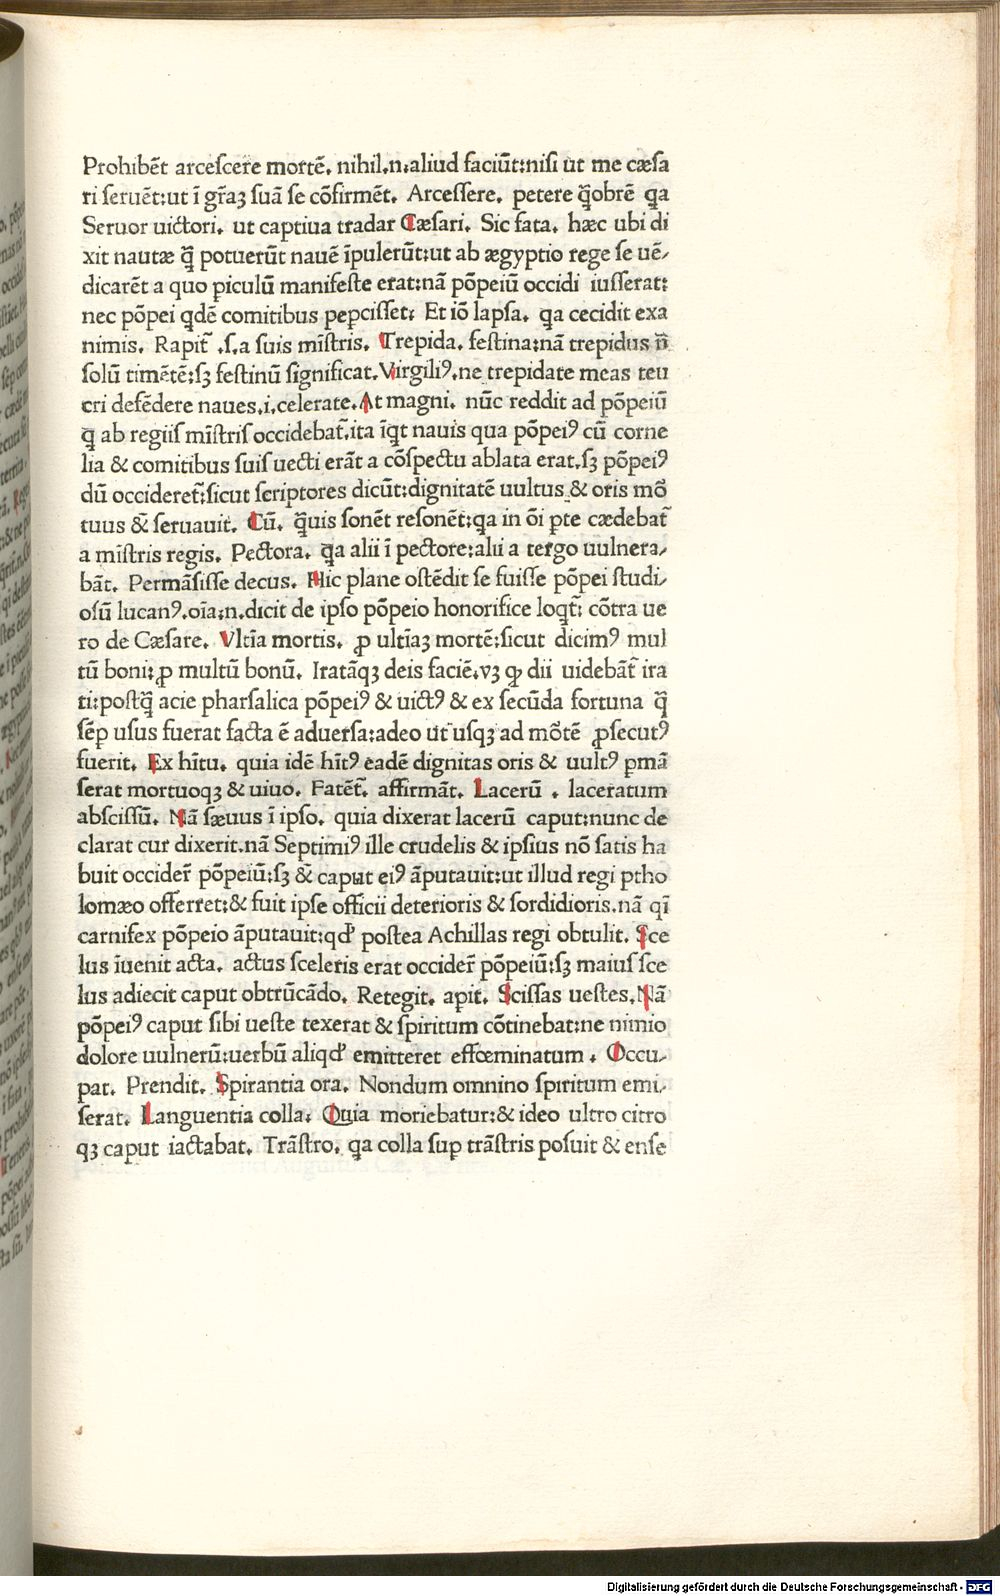 Prohibēt arcescere mortē. nihil.n.aliud faciūt:nisi ut me cæsa
ri seruēt:ut ī gr̄aꝫ suā se cōfirmēt. Arcessere. petere q̄obrē qa
Seruor uictori. ut captiua tradar Cæsari. Sic fata. hæc ubi di
xit nautæ q̄ potuerūt nauē īpulerūt:ut ab ægyptio rege se uē-
dicarēt a quo ꝑiculū manifeste erat:nā pōpeiū occidi iusserat:
nec pōpei qdē comitibus peꝑcisset: Et iō lapsa. qa cecidit exa
nimis. Rapit̄ .s.a suis mīstris. Trepida. festina:nā trepidus n̄
solū timētē:sꝫ festinū significat. Virgiliꝰ.ne trepidate meas teu
cri defēdere naues.i.celerate. At magni. nūc reddit ad pōpeiū
q̄ ab regiis mīstris occidebat̄.ita īqt nauis qua pōpeiꝰ cū corne
lia & comitibus suis uecti erāt a cōspectu ablata erat.sꝫ pōpeiꝰ
dū occideret̄:sicut scriptores dicūt:dignitatē uultus & oris mō
tuus & seruauit. Cū. q̄uis sonēt resonēt:qa in ōi ꝑte cædebat̄
a mīstris regis. Pectora. qa alii ī pectore:alii a tergo uulnera-
bāt. Permāsisse decus. Hic plane ostēdit se fuisse pōpei studi-
osū lucanꝰ.oīa.n.dicit de ipso pōpeio honorifice loqt̄: cōtra ue
ro de Cæsare. Vltīa mortis. ꝓ ultīaꝫ mortē:sicut dicimꝰ mul
tū boni:ꝓ multū bonū. Iratāqꝫ deis faciē.vꝫ ꝙ dii uidebāt̄ ira
ti:postq̄ acie pharsalica pōpeiꝰ & uictꝰ & ex secūda fortuna q̄
sēꝑ usus fuerat facta ē aduersa:adeo ut usqꝫ ad mōtē ꝓsecutꝰ
fuerit. Ex hītu. quia idē hītꝰ eadē dignitas oris & uultꝰ ꝑmā
serat mortuoqꝫ & uiuo. Fatēt̄. affirmāt. Lacerū . laceratum
abscissū. Nā sæuus ī ipso. quia dixerat lacerū caput:nunc de
clarat cur dixerit.nā Septimiꝰ ille crudelis & ipsius nō satis ha
buit occider̄ pōpeiū:sꝫ & caput eiꝰ āputauit:ut illud regi ptho
lomæo offerret:& fuit ipse officii deterioris & sordidioris.nā qī
carnifex pōpeio āputauit:qd̓ postea Achillas regi obtulit. Sce
lus īuenit acta. actus sceleris erat occider̄ pōpeiū:sꝫ maius sce
lus adiecit caput obtrūcādo. Retegit. apit. Scissas uestes. Nā
pōpeiꝰ caput sibi ueste texerat & spiritum cōtinebat:ne nimio
dolore uulnerū:uerbū aliqd̓ emitteret effœminatum . Occu-
pat. Prendit. Spirantia ora. Nondum omnino spiritum emi-
serat. Languentia colla: Quia moriebatur:& ideo ultro citro
qꝫ caput iactabat. Trāstro. qa colla suꝑ trāstris posuit & ense
Digitalisierung gefördert durch die Deutsche Forschungsgemeinschaft - DFG